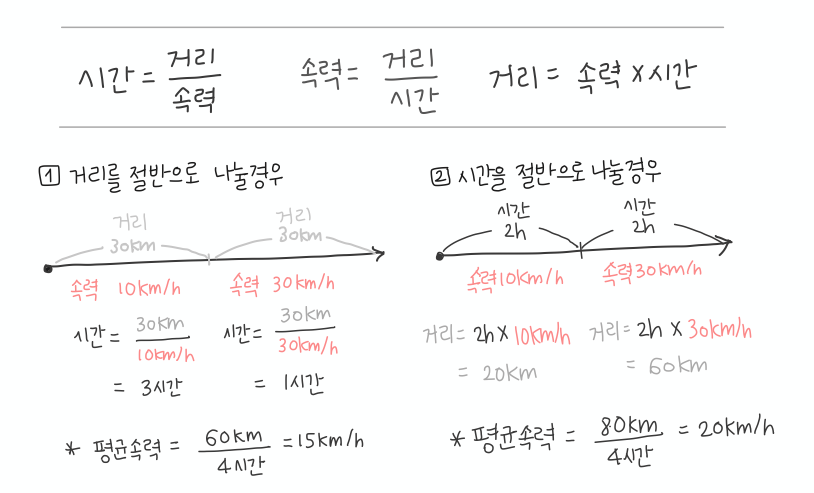 시간 = 거리/속력 속력 = 거리/시간 거리 = 속력 x 시간
1 거리를 절반으로 나눌경우
거리 30km 거리 30km
속력 10km/h 속력 30km/h
시간 = 30km/10km/h 시간 = 30km/30km/h
= 3시간 = 1시간
* 평균속력 = 60km/4시간 = 15km/h
2 시간을 절반으로 나눌경우
시간 2h 시간 2h
속력 10km/h 속력 30km/h
거리 = 2h x 10km/h 거리 = 2h x 30km/h
= 20km = 60km
* 평균속력 = 80km/4시간 = 20km/h